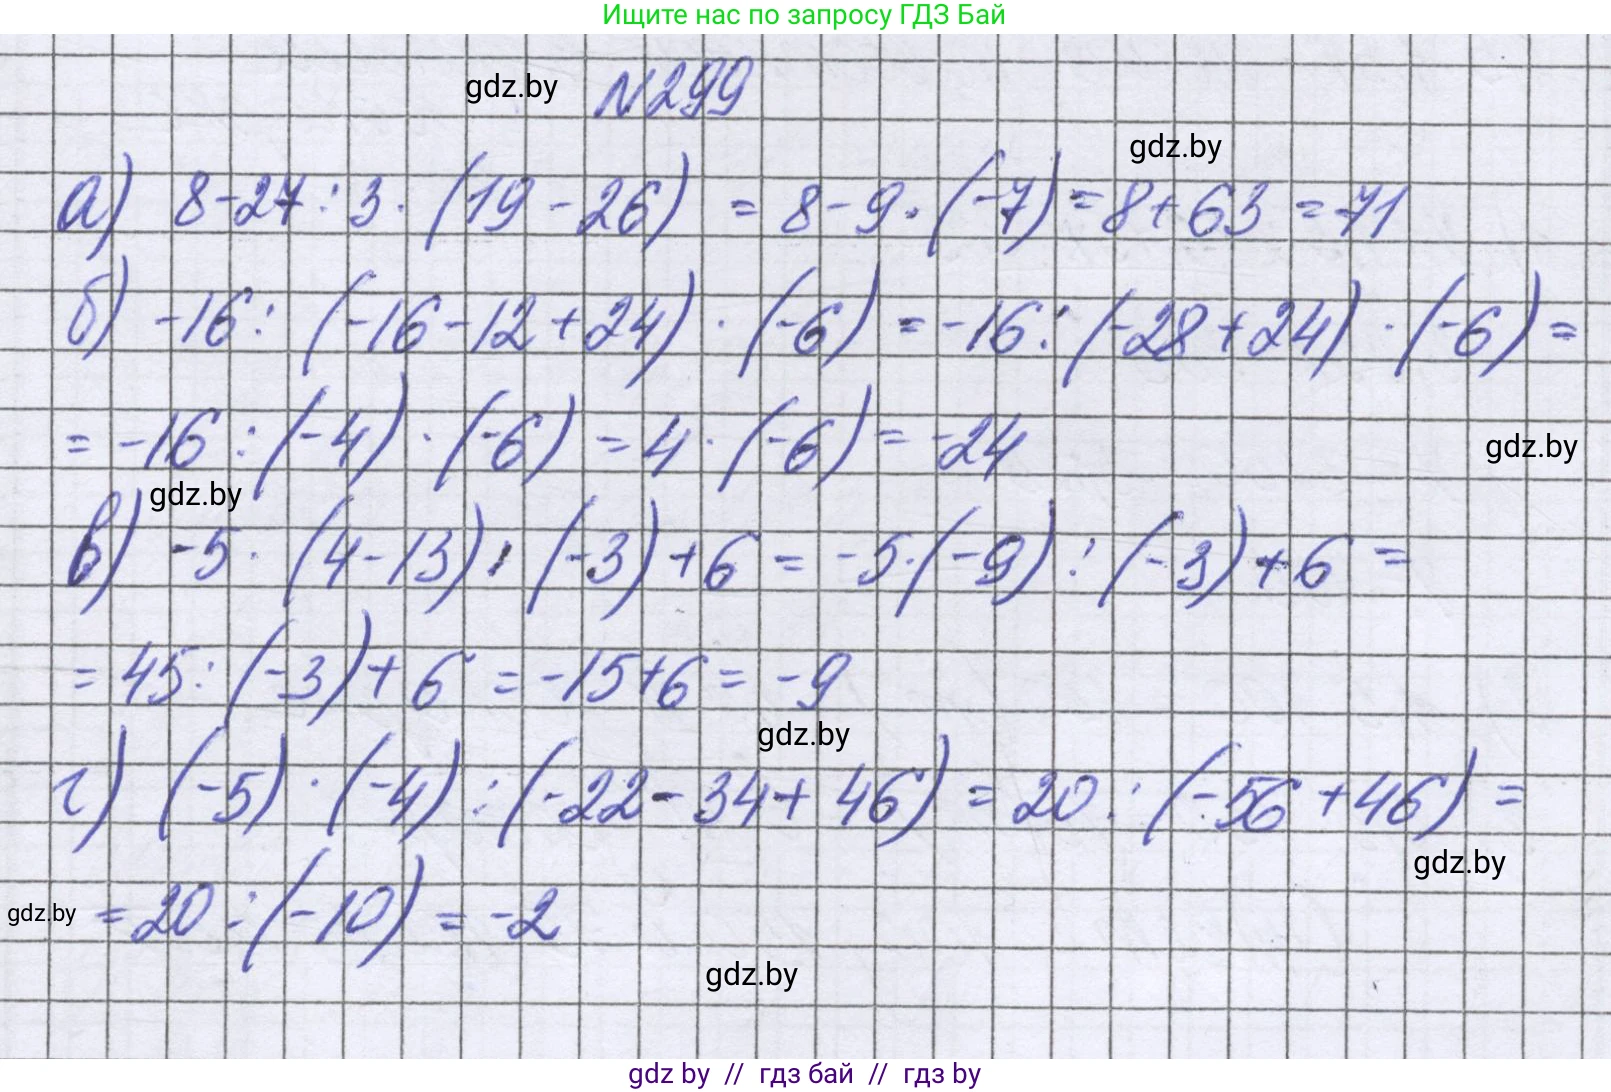 Ищите нас по запросу ГДЗ Бай
gdz.by №299
gdz.by
а) 8-27:3·(19-26) = 8-9·(-7)=8+63=71
б) -16:(-16-12+24)·(-6)=-16:(-28+24)·(-6)=
=-16:(-4)·(-6)=4·(-6)=-24
gdz.by
gdz.by
в) -5·(4-13):(-3)+6=-5·(-9):(-3)+6=
=45:(-3)+6=-15+6=-9
gdz.by
г) (-5)·(-4):(-22-34+46)=20:(-56+46)=
gdz.by
gdz.by =20:(-10)=-2
gdz.by
gdz by // гдз бай // гдз by